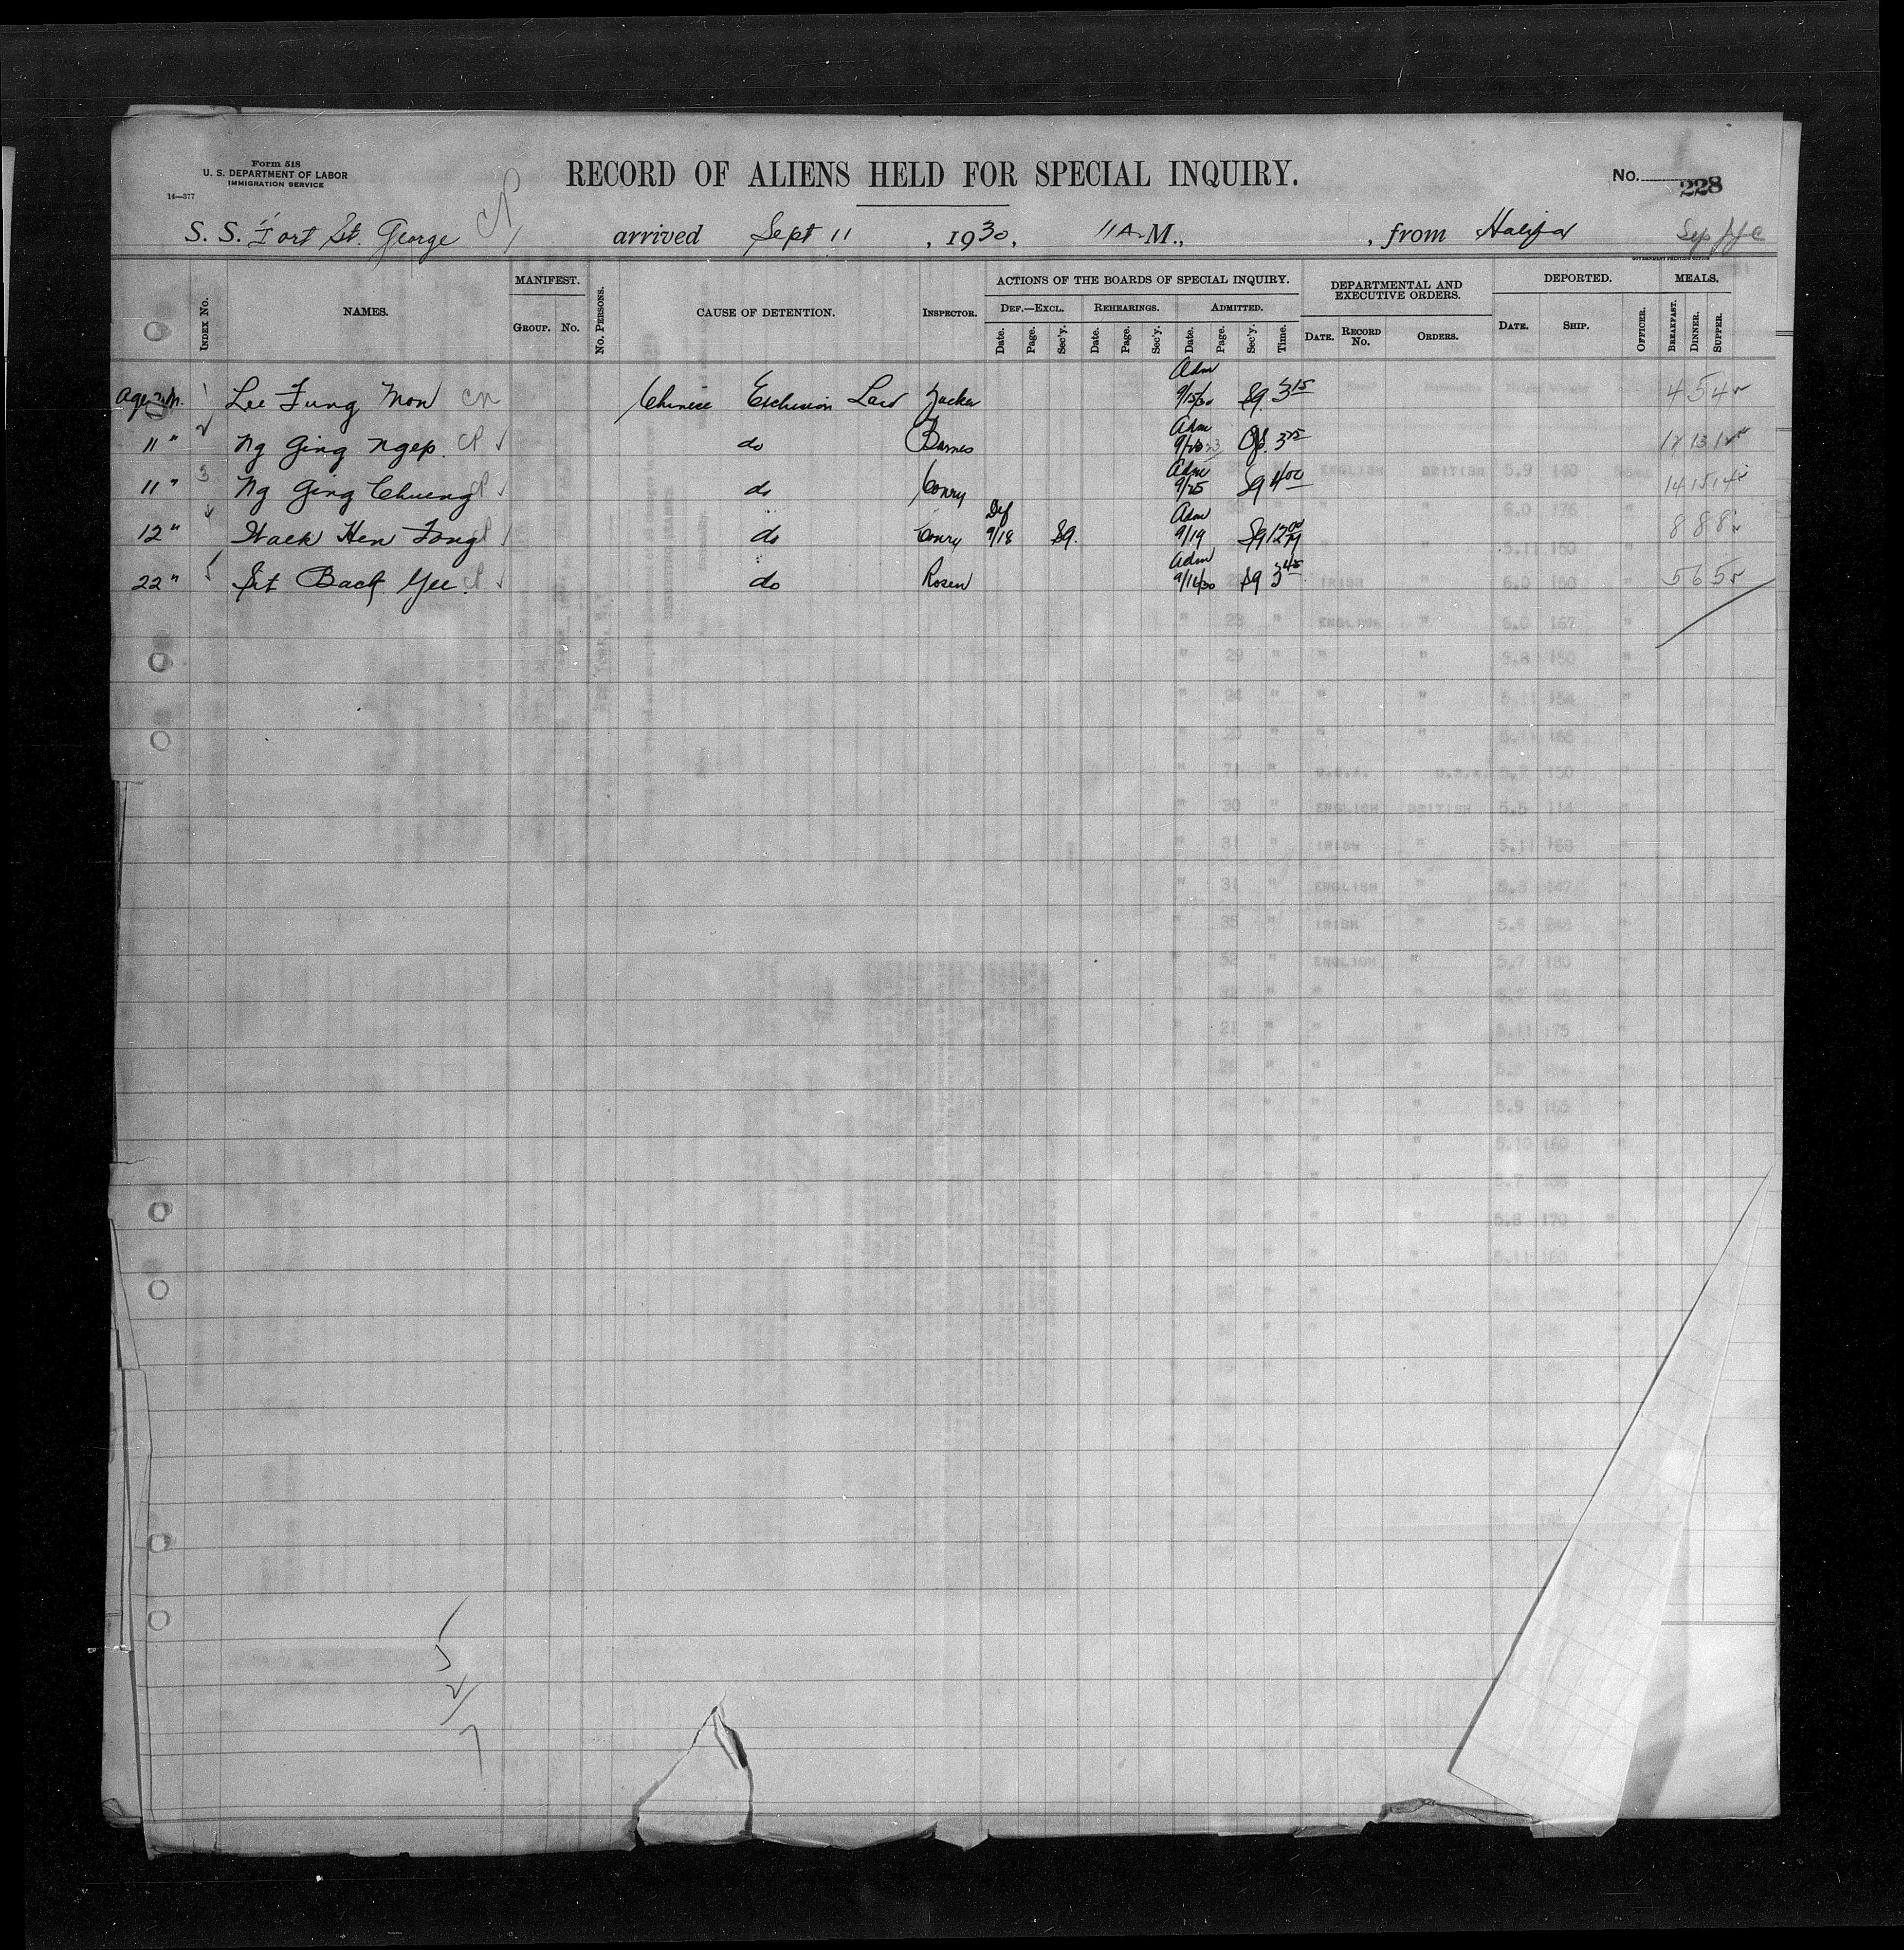 Form 518
U. S. DEPARTMENT OF LABOR
IMMIGRATION SERVICE
14—377
RECORD OF ALIENS HELD FOR SPECIAL INQUIRY.
No. 228
S. S. Fort St. George arrived Sept 11, 1930, 11 A M., , from Halifax
GOVERNMENT PRINTING OFFICE
INDEX No. NAMES. MANIFEST. GROUP. No. No. PERSONS. CAUSE OF DETENTION. INSPECTOR. ACTIONS OF THE BOARDS OF SPECIAL INQUIRY. DEF.—EXCL. Date. Page. Sec'y. REHEARINGS. Date. Page. Sec'y. ADMITTED. Date. Page. Sec'y. Time. DEPARTMENTAL AND EXECUTIVE ORDERS. DATE. RECORD No. ORDERS. DEPORTED. DATE. SHIP. OFFICER. MEALS. BREAKFAST. DINNER. SUPPER.
Age m. 1 Lee Fung Mon Chinese Exclusion Law Zucker Adm 9/15/30 Sg. 3 15 4 5 4
11 " 2 Ng Ging Ngep. CP do Barnes Adm 3 25 12 13 12
11 " 3 Ng Ging Chueng CP do Conry Adm 9/25 Sg 4 00 14 15 14
12 " 4 Hen Fong do Conry Def 9/18 Sg. Adm 9/19 Sg 12 00 8 8 8
22 " 5 Sit Back Yee. CP do Rosen Adm 9/16/30 Sg 3 45 5 6 5
5
2
7